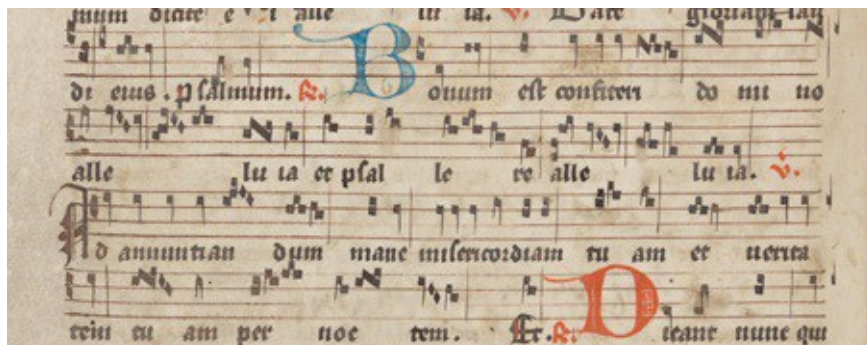 mum dicite e i alle lu ia. V. Date gloriam lau
di eius. psalmum. R. Bonum est confiteri do mi no
alle lu ia et psal le re alle lu ia. V.
Ad annuntian dum mane misericordiam tu am et uerita
tem tu am per noc tem. Et. R. Dicant nunc qui